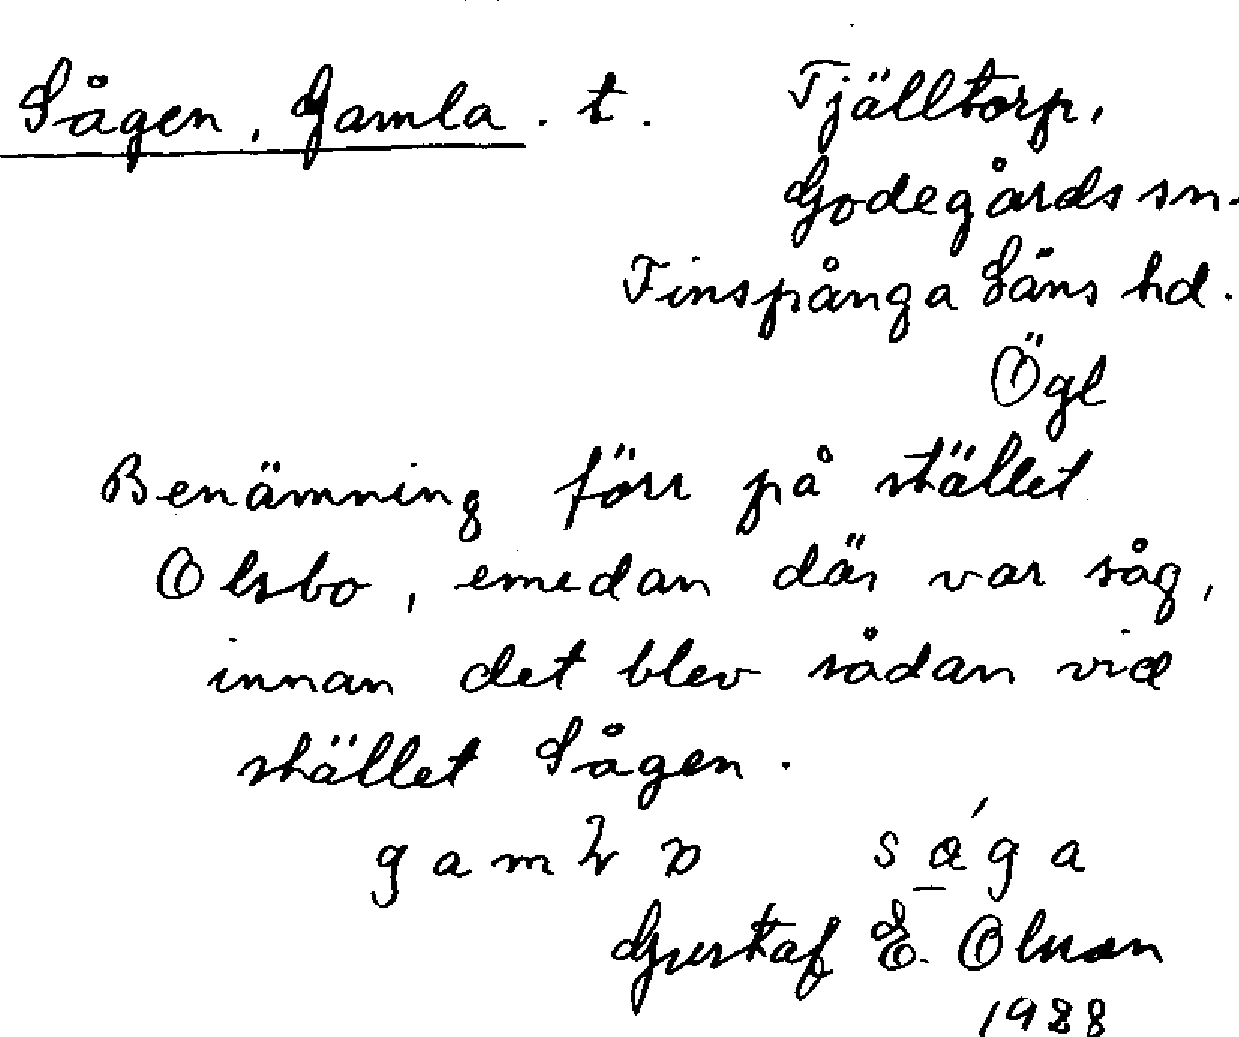 Sågen, Gamla. t. Tjälltorp,
Godegårds sn.
Finspånga Läns hd.
Ögl
Benämning förr på stället
Olsbo, emedan där var såg,
innan det blev sådan vid
stället Sågen.
Gustaf E. Olsson
1928